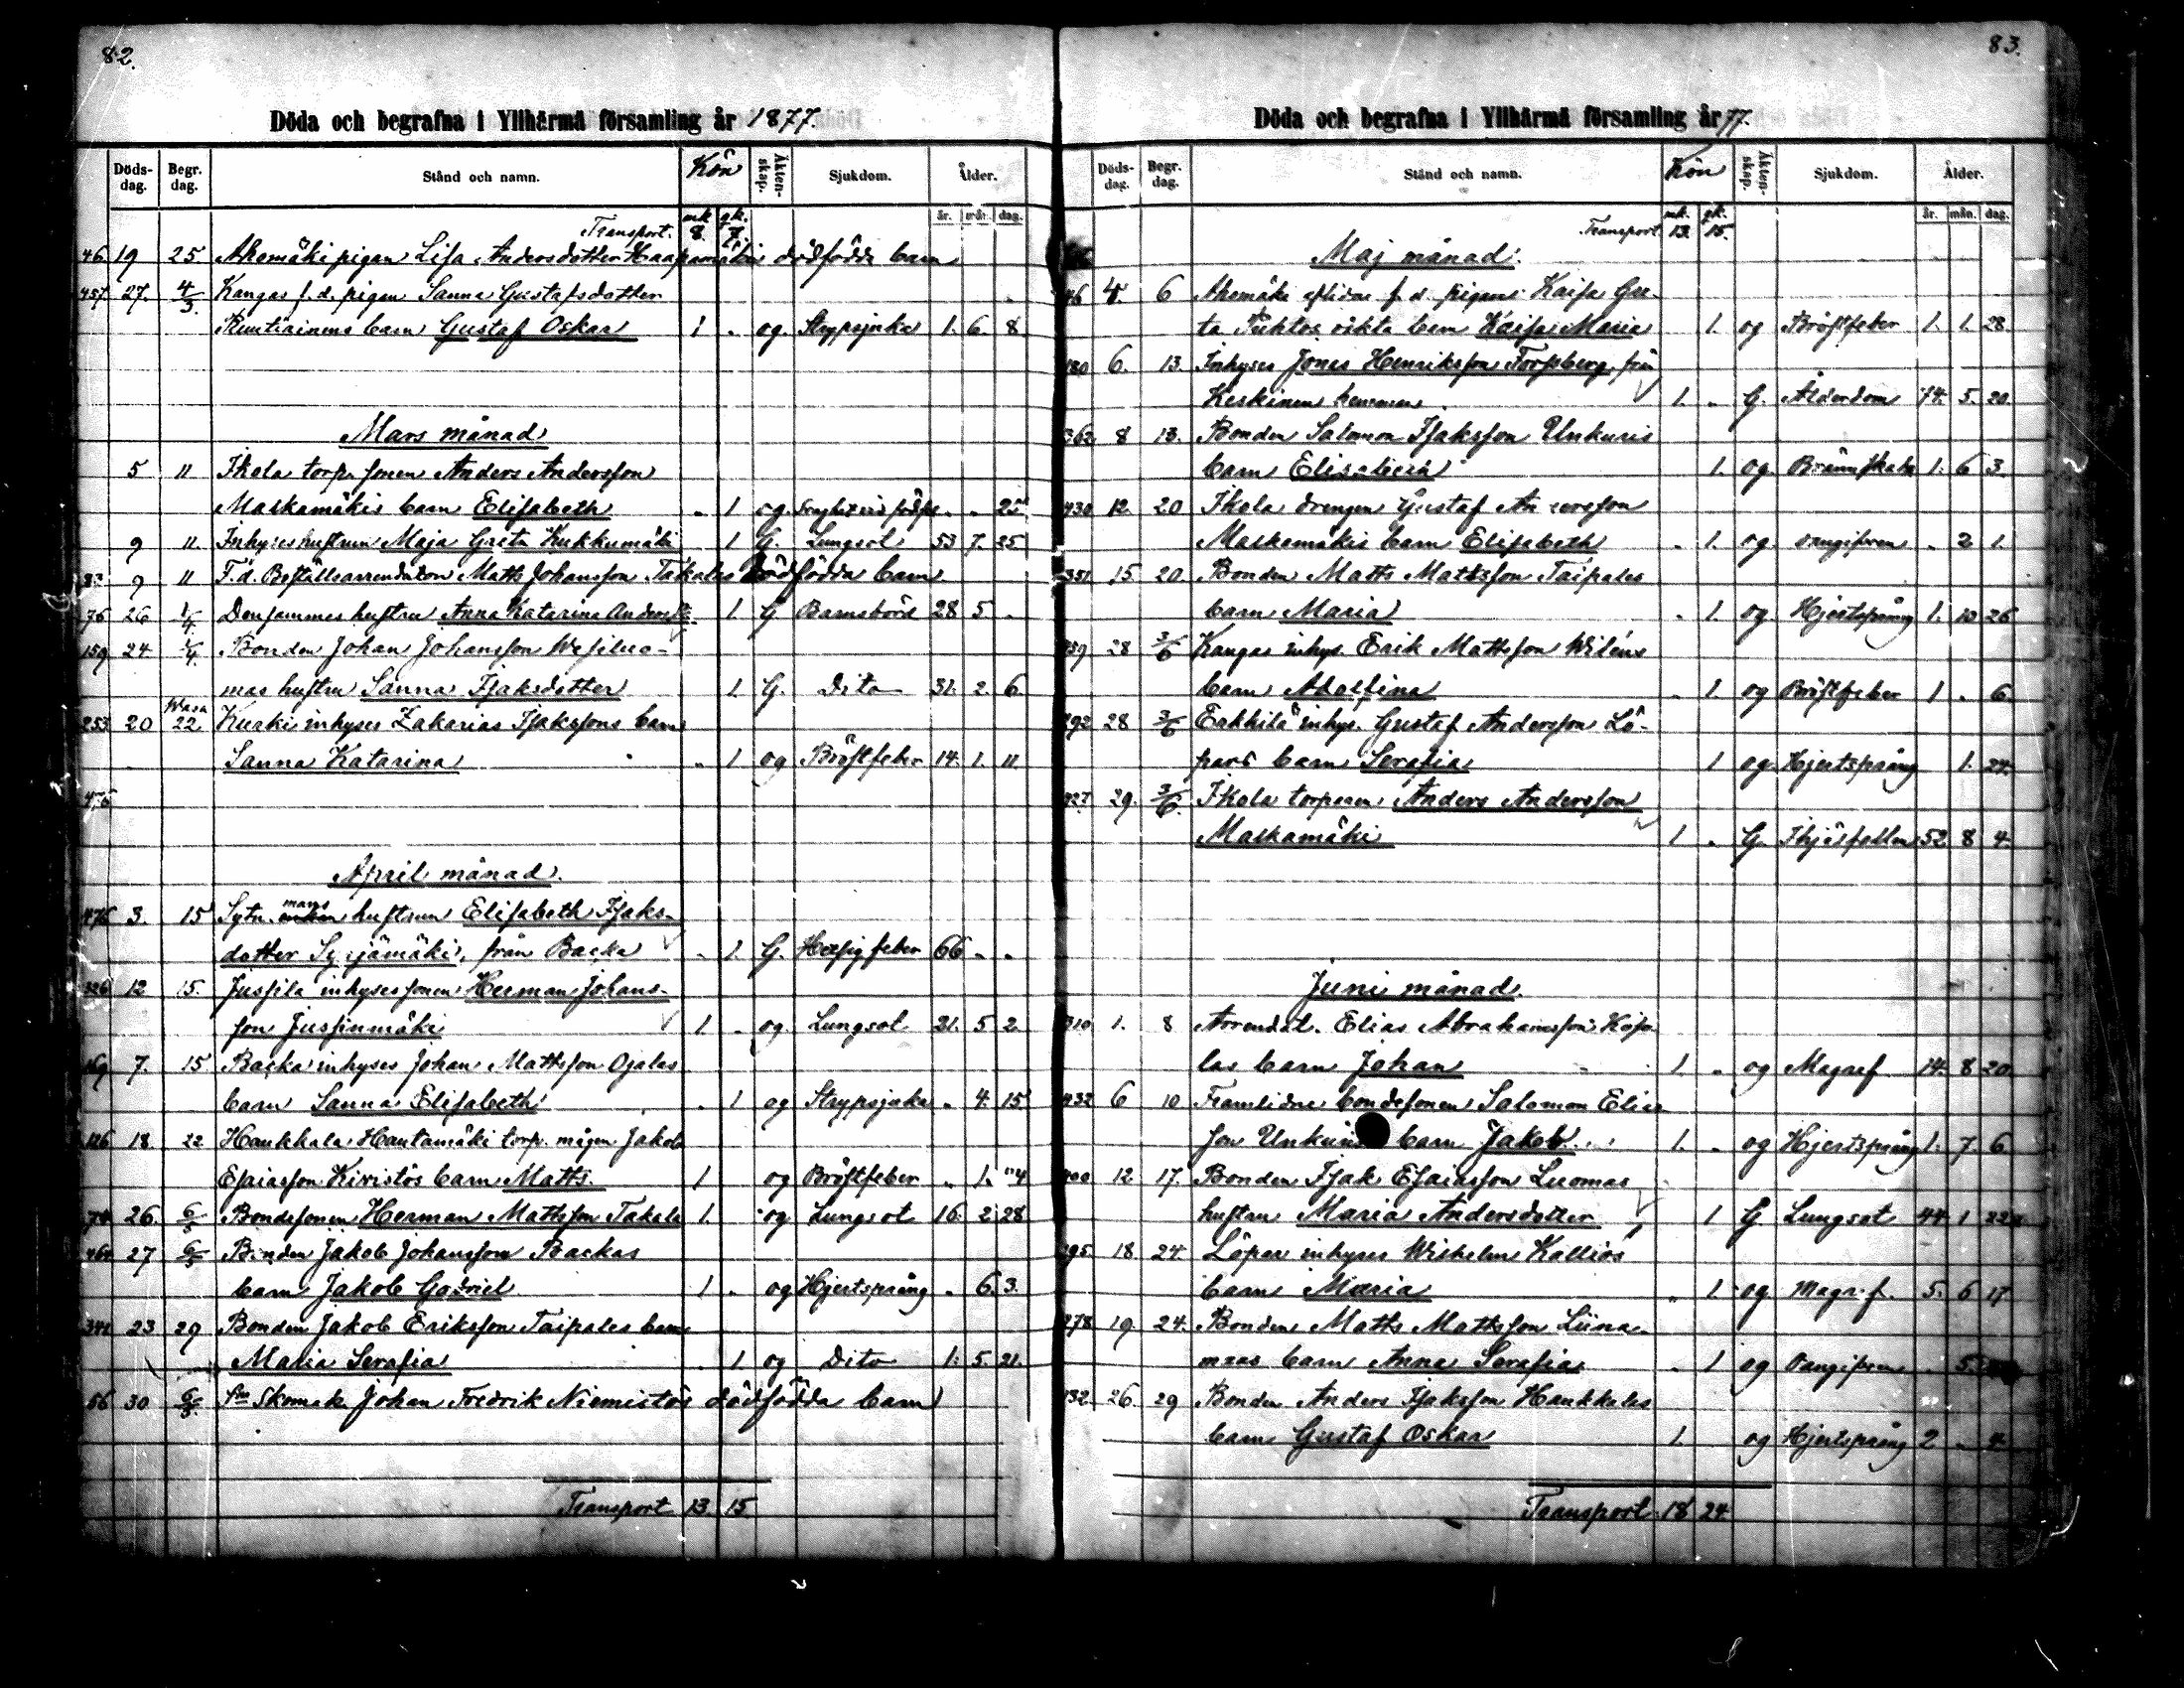 82.
Döda och begrafna i Ylihärmä församling år 1877.
Döds-dag. Begr. dag. Stånd och namn. Kön Äkten-skap. Sjukdom. Ålder.
mk. qk. år. mån. dag.
Transport. 8. 7.
46 19 25. Ahomäki pigan Lisa Andersdotter Haapamäkis dödfödda barn
457. 27. 4/3. Kangas f. d. pigan Sanna Gustafsdotter
barn Gustaf Oskar 1 " og. Strypsjuka 1. 6. 8.
Mars månad
5 11 Ikola torp. sonen Anders Andersson
Maskamäkis barn Elisabeth " 1 og.
9 11. Inhyseshustrun Maja Greta Kukkumäki 1 G. Lungsot 53 7. 25
9 11 F. d. Beställsarrendatorn Matts Johansson Takalas Dödfödda barn
76 26 1/4. Densammes hustru Anna Katarina Andersdr. 1. G. Barnsbörd 28 5. "
159 24. 1/4. Bonden Johan Johansson Wesiluo-
mas hustru Sanna Isaksdotter 1. G. Dito 31. 2. 6.
Wasa
253 20 22. Kuoki inhyses Zakarias Isakssons barn
Sanna Katarina " 1 og Bröstfeber 14. 1. 11.
April månad.
mans
476 3. 15 Sytn. hustrun Elisabeth Isaks-
dotter Syrjämäki, från Backa " 1. G. Hetsig feber 66 " "
326 12 15. Jussila inhysessonen Herman Johans-
son Jussinmäki 1 " og Lungsot 21. 5 2
169 7. 15 Backa inhyses Johan Mattsson Ojalas
barn Sanna Elisabeth " 1 og Strypsjuka " 4. 15
126 18. 22 Haukkala Hautamäki torp. mågen Jakob
Esaiasson Kiviistös barn Matts. 1 og Bröstfeber " 1. 4
74 26. 6/5 Bondesonen Herman Mattsson Takala 1. og Lungsot 16. 2. 28
464 27 6/5 Bonden Jakob Johansson Backas
barn Jakob Gabriel 1 " og Hjertsprång " 6. 3.
341 23 29 Bonden Jakob Eriksson Taipales barn
Maria Serafia " 1. og Dito 1. 5. 21.
56 30 6/5. Skomak. Johan Fredrik Niemistös dödfödda barn
Transport 13. 15.
83.
Döda och begrafna i Ylihärmä församling år 77.
Döds-dag. Begr. dag. Stånd och namn. Kön Äkten-skap. Sjukdom. Ålder.
mk. qk. år. mån. dag.
Transport 13. 15.
Maj månad.
46 4. 6 Ahomäki aflidne f. d. pigans Kaisa Gus-
ta oäkta barn Kaisa Maria 1. og Bröstfeber 1. 1. 28.
180 6. 13. Inhyses Jonas Henriksson Torpberg, från
Keskinen hemman 1. " G. Ålderdom 74. 5. 20.
362 8 13. Bonden Salomon Isaksson Unkuris
barn Elisabeth 1. og Brännskada 1. 6 3.
430 12. 20 Ikola drengen Gustaf Andersson
Maskamäkis barn Elisabeth " 1. og " 2 1.
351 15. 20 Bonden Matts Mattsson Taipales
barn Maria " 1. og Hjertsprång 1. 10 26
459 28 3/6 Kangas inhys. Erik Mattsson Wiléns
barn Adolfina " 1 og Bröstfeber 1 " 6.
292 28 3/6 Eakkilä inhys. Gustaf Andersson Lö-
pars barn Serafia 1 og Hjertsprång 1. 24.
427 29. 3/6. Ikola torparen Anders Andersson
Maskamäki 1. " G. 52 8 4.
Juni månad.
310 1. 8 Arrendat. Elias Abrahamsson Kojo-
las barn Johan 1. " og Magref 14. 8 20
432 6 10 Framlidne bondesonen Salomon Elias
son barn Jakob 1. " og Hjertsprång 1. 7. 6.
12 17. Bonden Isak Esaiasson Luomas
hustru Maria Andersdotter 1 G Lungsot 44 1 22
295. 18. 24. Löpar inhyses Wilhelm Kallios
barn Maria " 1 og Magref. 5. 6 17
278 19. 24. Bonden Matts Mattsson Liina-
maas barn Anna Serafia " 1 og 5.
132. 26. 29 Bonden Anders Isaksson Haukkalas
barn Gustaf Oskar 1. og Hjertsprång 2 " 4.
Transport 18 24